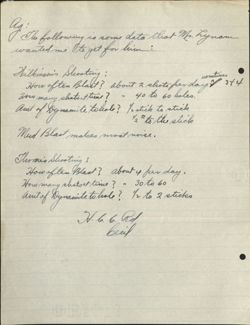 Ag:
The following is some data that Mr. Lynam
wanted me to get for him:
Shooting:
How often Blast? about 2 shots per day sometimes 3 & 4
How many shots at time? " 40 to 60 holes.
Amt of Dynamite to hole? ½ stick to stick
½" to the stick
Mud Blast makes most noise.
Thomas Shooting:
How often Blast? about 4 per day.
How many shots at time? " 30 to 60
Amt of Dynamite to hole? ½ to 2 sticks